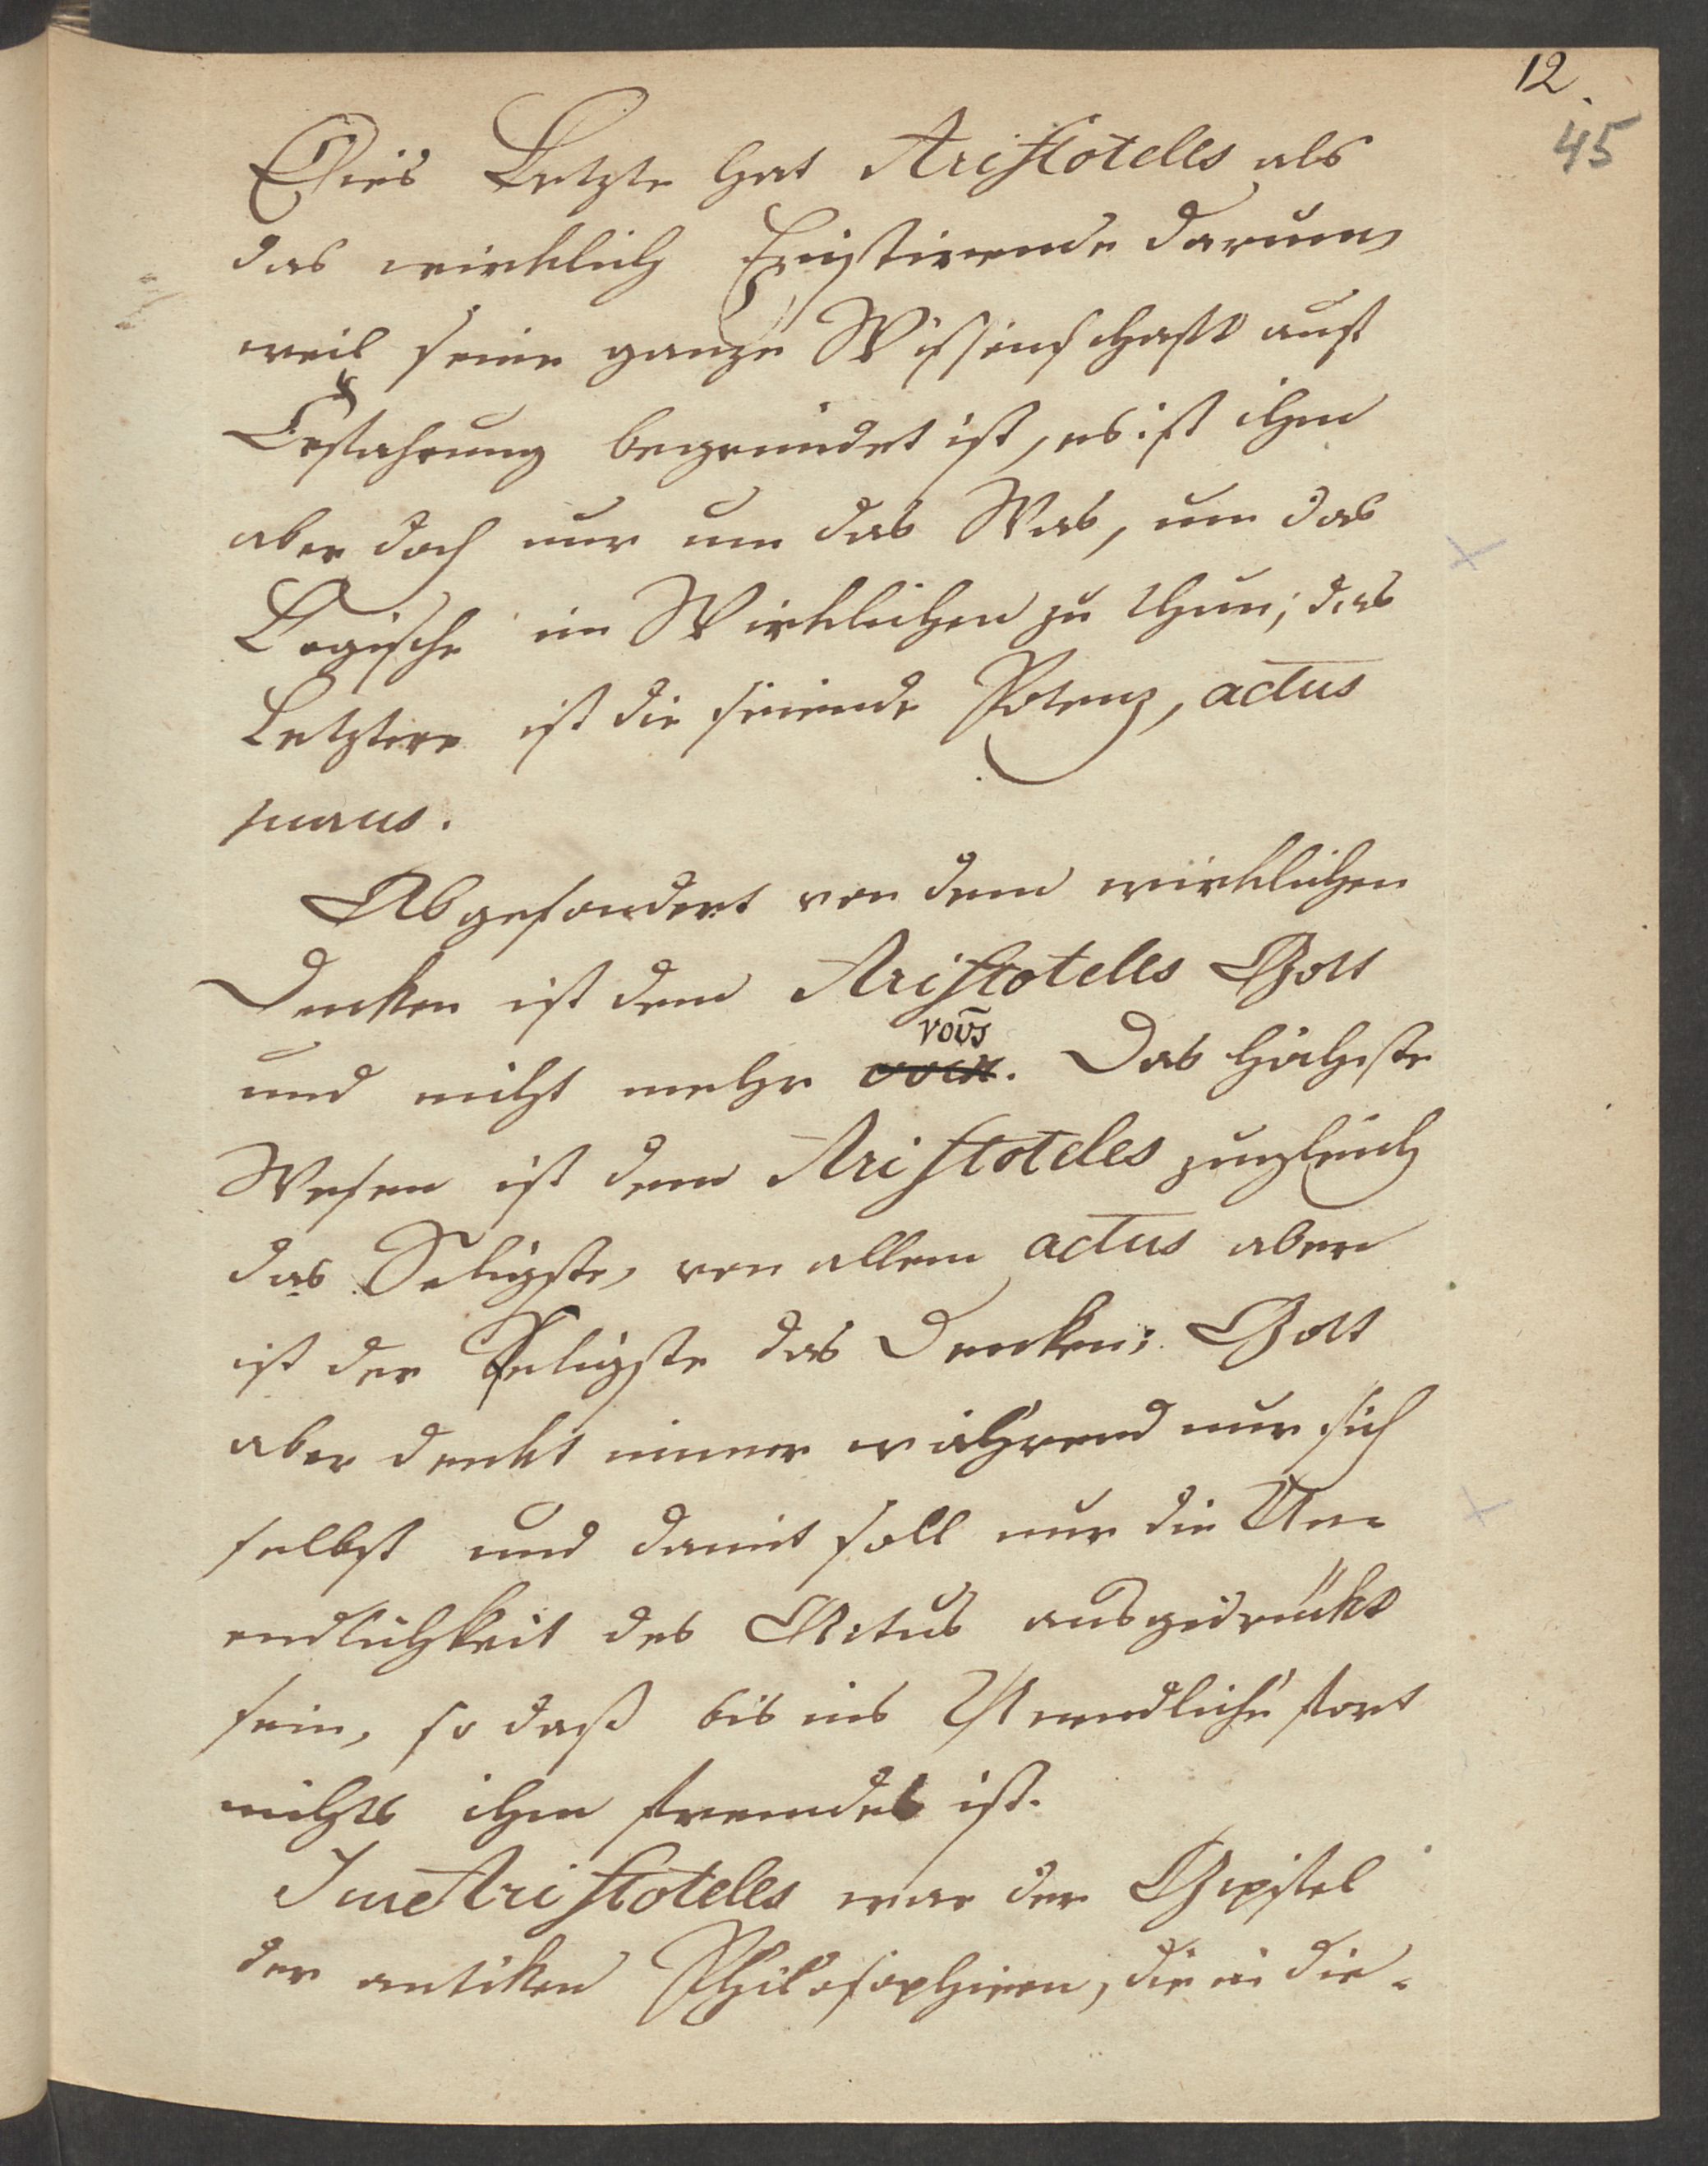 12.
45
Dies Letzte hat Aristoteles als
das wirklich Existirende darum,
weil seine ganze Wissenschaft auf
Erfahrung begründet ist, es ist ihm
aber doch nur um das Was, um das
Logische im Wirklichen zu thun; das
Letztere ist die seiende Potenz, actus
purus.
Abgesondert von dem wirklichen
Denken ist dem Aristoteles Gott
νοῦς
und nicht mehr . Das höchste
Wesen ist dem Aristoteles zugleich
das Seligste, von allem actus aber
ist der Seligste das Denken; Gott
aber denkt immer während nur sich
selbst und damit soll nur die Un-
endlichkeit des Actus ausgedrückt
sein, so daß bis ins Unendliche fort
nichts ihm fremdes ist.
Im Aristoteles war der Gipfel
der antiken Philosophieen, die in die-